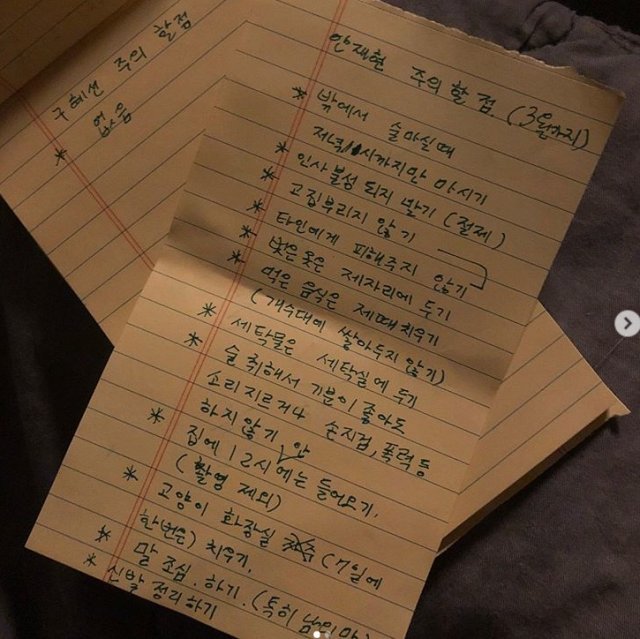 구혜선 주의 할점
* 없음
안재현 주의 할 점. (3일까지)
* 밖에서 술마실때
저녁 11시까지만 마시기
* 인사불성 되지 말기 (절제)
* 고집부리지 않기
* 타인에게 피해주지 않기
* 벗은 옷은 제자리에 두기
* 먹은 음식은 제때 치우기
(개수대에 쌓아두지 않기)
* 세탁물은 세탁실에 두기
* 술 취해서 기분이 좋아도
소리지르거나 손지검, 폭력 등
하지않기
* 집에 12시 안에는 들어오기.
(촬영 제외)
* 고양이 화장실 (7일에
한번은) 치우기.
* 말 조심. 하기. (특히 남의
* 신발 정리하기